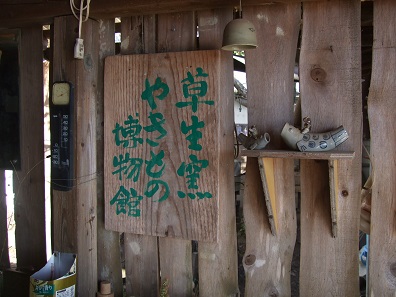 草生窯
やきもの
博物館